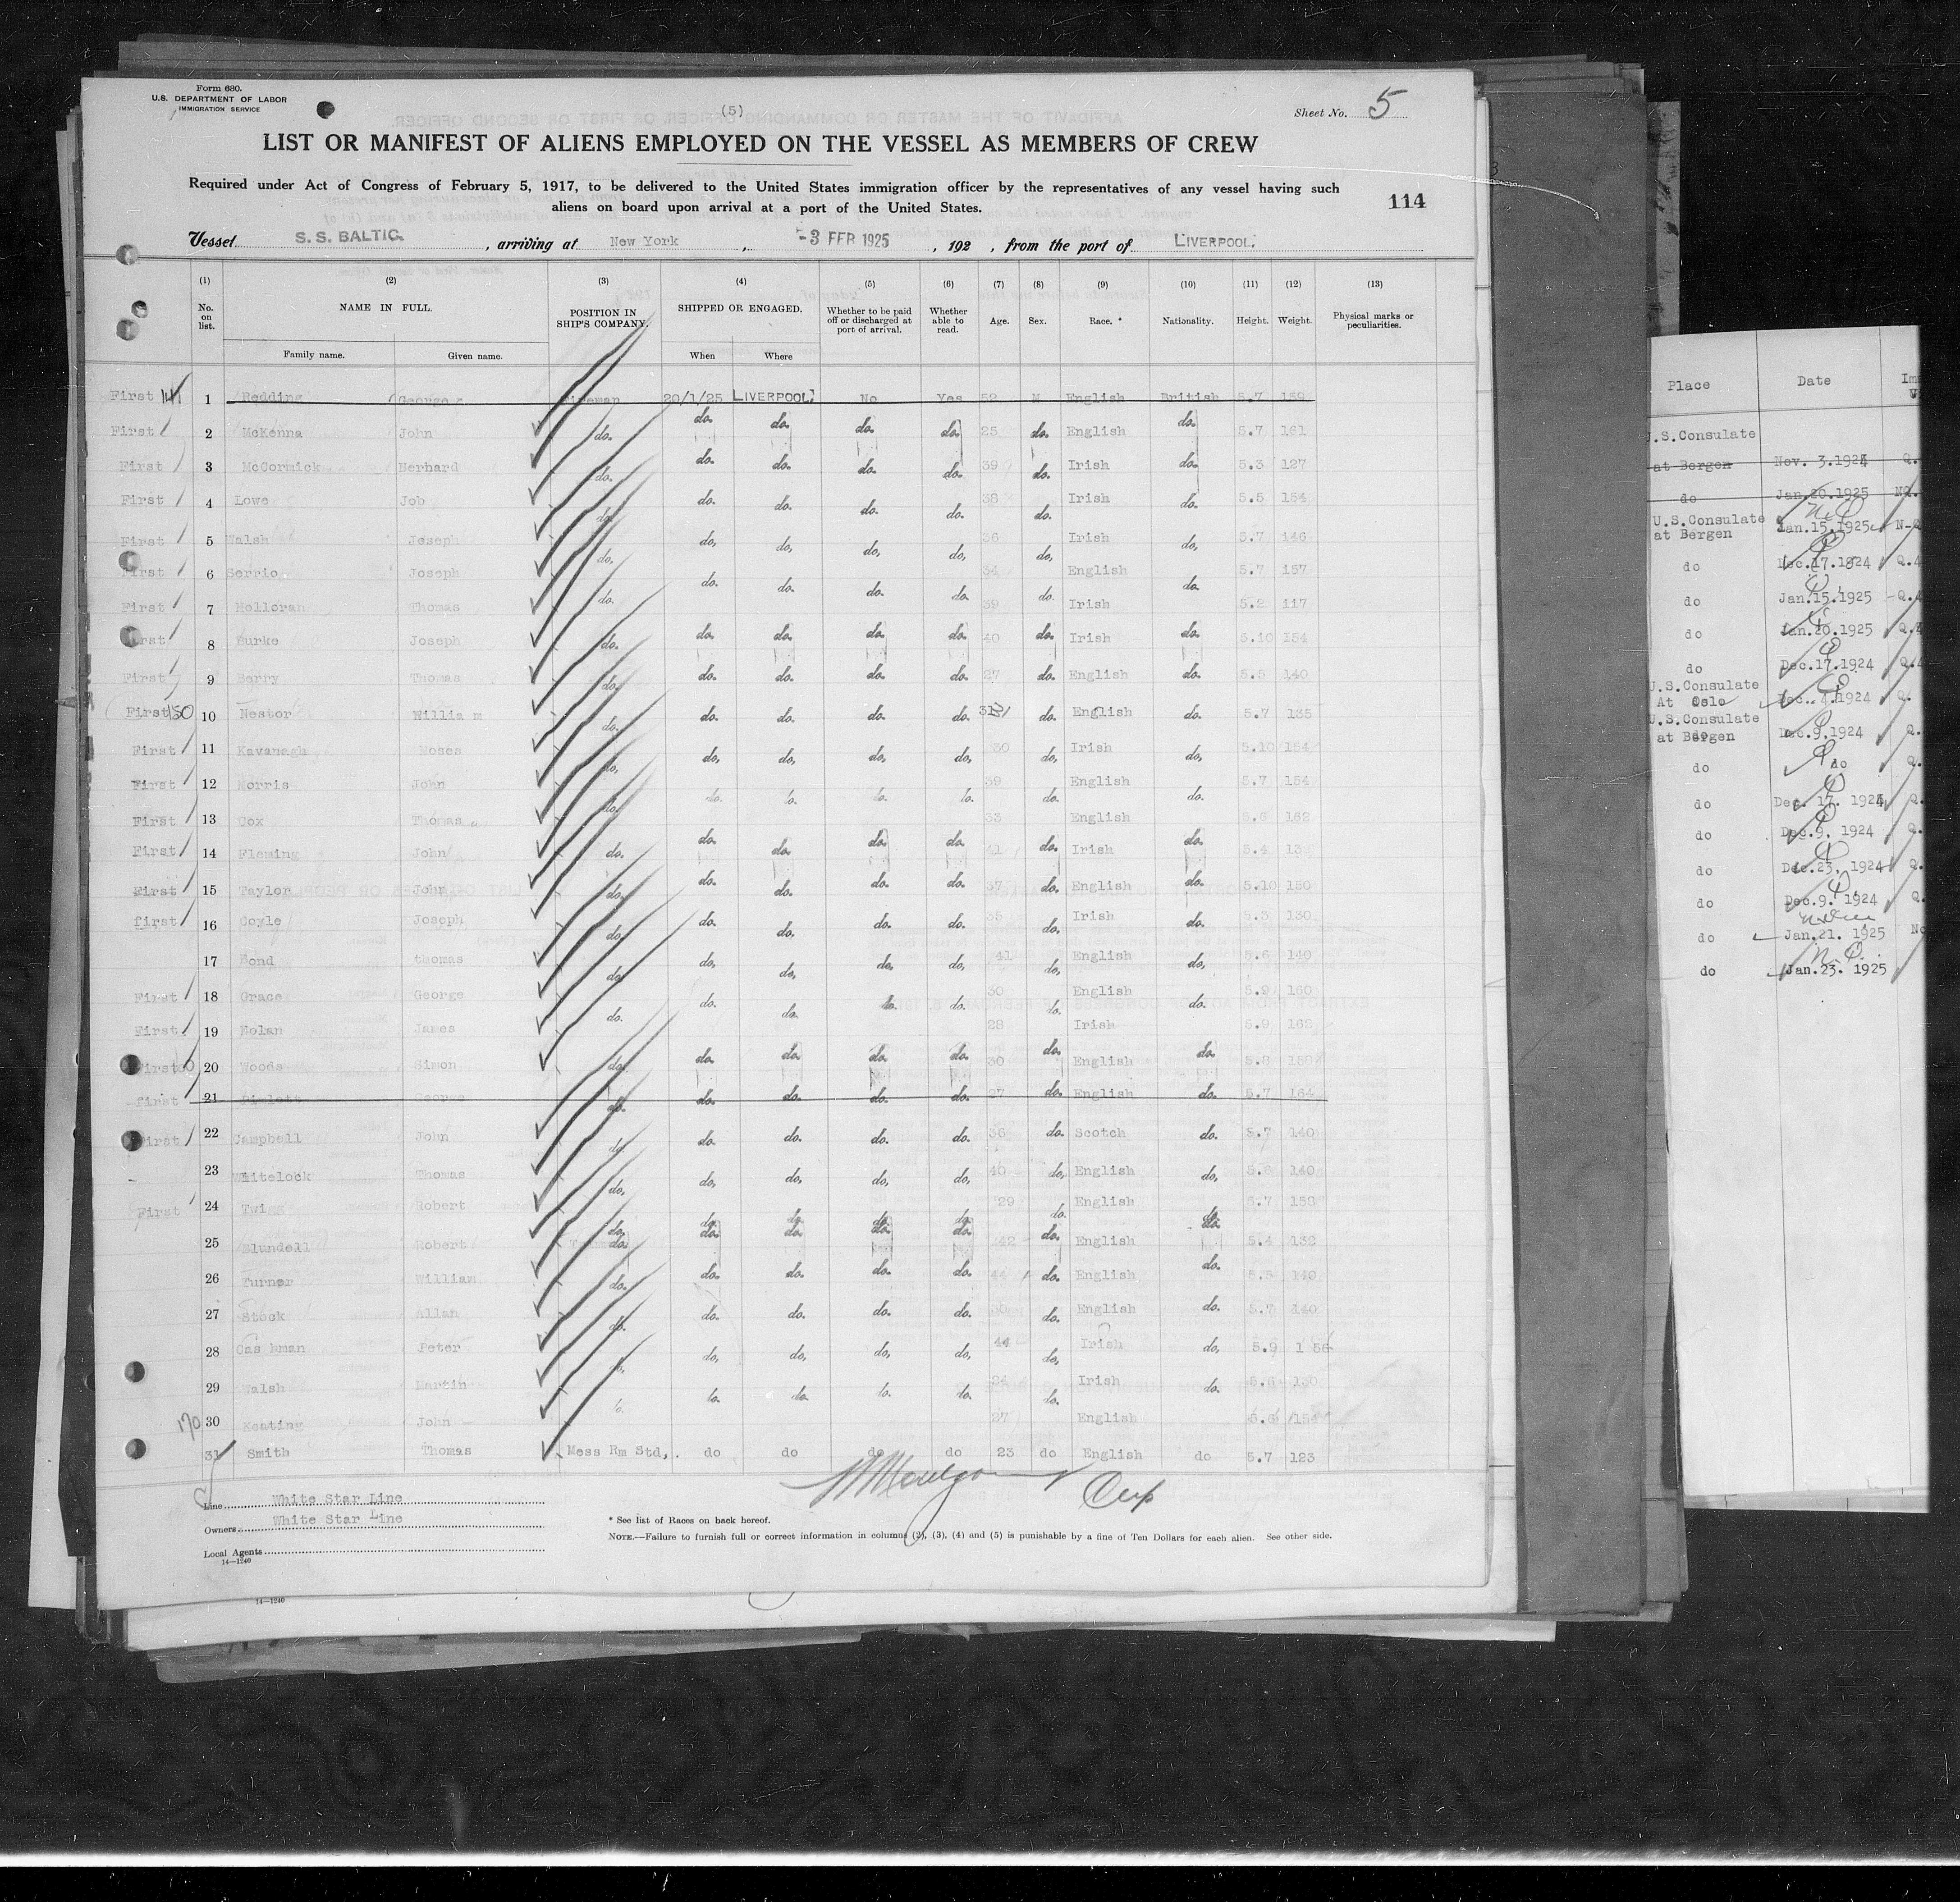 Form 680.
U.S. DEPARTMENT OF LABOR
IMMIGRATION SERVICE
(5)
Sheet No. 5
LIST OR MANIFEST OF ALIENS EMPLOYED ON THE VESSEL AS MEMBERS OF CREW
Required under Act of Congress of February 5, 1917, to be delivered to the United States immigration officer by the representatives of any vessel having such
aliens on board upon arrival at a port of the United States.
114
Vessel S. S. BALTIC, arriving at New York, -3 FEB 1925, 192 , from the port of LIVERPOOL.
(1) (2) (3) (4) (5) (6) (7) (8) (9) (10) (11) (12) (13)
No. on list. NAME IN FULL. POSITION IN SHIP'S COMPANY. SHIPPED OR ENGAGED. Whether to be paid off or discharged at port of arrival. Whether able to read. Age. Sex. Race. * Nationality. Height. Weight. Physical marks or peculiarities.
Family name. Given name. When Where
First 1 Redding George Fireman 20/1/25 LIVERPOOL. No Yes 52 M English British 5.7 159
First 2 McKenna John do. do. do. do. do. 25 do. English do. 5.7 161
First 3 McCormick Berhard do. do. do. do. do. 39 do. Irish do. 5.3 127
First 4 Lowe Job do. do. do. do. do. 38 do. Irish do. 5.5 154
First 5 Walsh Joseph do. do. do. do. do. 36 do. Irish do. 5.7 146
First 6 Serrio Joseph do. do. do. do. do. 34 do. English do. 5.7 157
First 7 Holloran Thomas 39 Irish 5.2 117
First 8 Burke Joseph do. do. do. do. do. 40 do. Irish do. 5.10 154
First 9 Berry Thomas do. do. do. do. do. 27 do. English do. 5.5 140
First 150 10 Nestor William do. do. do. do. do. 31 do. English do. 5.7 135
First 11 Kavanagh Moses do. do. do. do. do. 30 do. Irish do. 5.10 154
First 12 Morris John do. do. do. do. do. 39 do. English do. 5.7 154
First 13 Cox Thomas 33 English 162
First 14 Fleming John do. do. do. do. do. 41 do. Irish do. 5.4
First 15 Taylor John do. do. do. do. do. 37 do. English do. 5.10 150
first 16 Coyle Joseph do. do. do. do. do. 35 do. Irish do. 5.3 130
17 Bond thomas do. do. do. do. do. 41 do. English do. 5.6 140
First 18 Grace George do. do. do. do. do. 30 do. English do. 5.9 160
First 19 Nolan James 28 Irish 5.9 162
First 20 Woods Simon do. do. do. do. do. 30 do. English do. 5.8
first 21 George do. do. do. do. do. 37 do. English do. 5.7 164
First 22 Campbell John do. do. do. do. do. 36 do. Scotch do. 5.7 140
23 Whitelock Thomas do. do. do. do. do. 40 do. English do. 5.6 140
First 24 Twigg Robert do. do. do. do. do. 29 do. English do. 5.7 158
25 Blundell Robert do. do. do. do. do. 42 do. English do. 5.4 132
26 Turner William do. do. do. do. do. 44 do. English do. 5.5 140
27 Stock Allan do. do. do. do. do. 36 do. English do. 5.7 140
28 Cas hman Peter do. do. do. do. do. 44 do. Irish do. 5.9 1 56
29 Walsh Martin do. do. do. do. do. 24 do. Irish do. 5.6 130
170 30 Keating John 27 English 5.6 154
31 Smith Thomas Mess Rm Std, do do do do 23 do English do 5.7 123
Line White Star Line
Owners White Star Line
Local Agents
14—1240
* See list of Races on back hereof.
NOTE.—Failure to furnish full or correct information in columns (2), (3), (4) and (5) is punishable by a fine of Ten Dollars for each alien. See other side.
14—1240
Place Date
U.S.Consulate
at Bergen Nov. 3.1924 Q.
do Jan.20.1925 NQ.
U.S.Consulate
at Bergen Jan.15.1925 N-Q
do Dec.17.1924 Q.4
do Jan.15.1925 Q.4
do Jan.20.1925 Q.4
do Dec.17.1924 Q.4
U.S.Consulate
At Oslo Dec. 4.1924 Q.
U.S.Consulate
at Bergen Dec.9.1924 Q.
do do Q.
do Dec. 17. 1924 Q.
do Dec.9. 1924 Q.
do Dec.23. 1924 Q.
do Dec.9. 1924 Q.
do Jan.21. 1925
do Jan.23. 1925